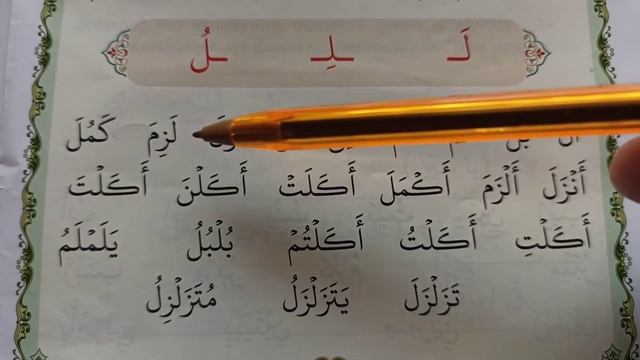 لَـ ـلِـ ـلُ
لَزِمَ كَمُلَ
أَنْزَلَ أَلْزَمَ أَكْمَلَ أَكَلَتْ أَكَلْنَ أَكَلْتَ
أَكَلْتِ أَكَلْتُ أَكَلْتُمْ بُلْبُلُ يَلَمْلَمُ
تَزَلْزَلَ يَتَزَلْزَلُ مُتَزَلْزِلُ